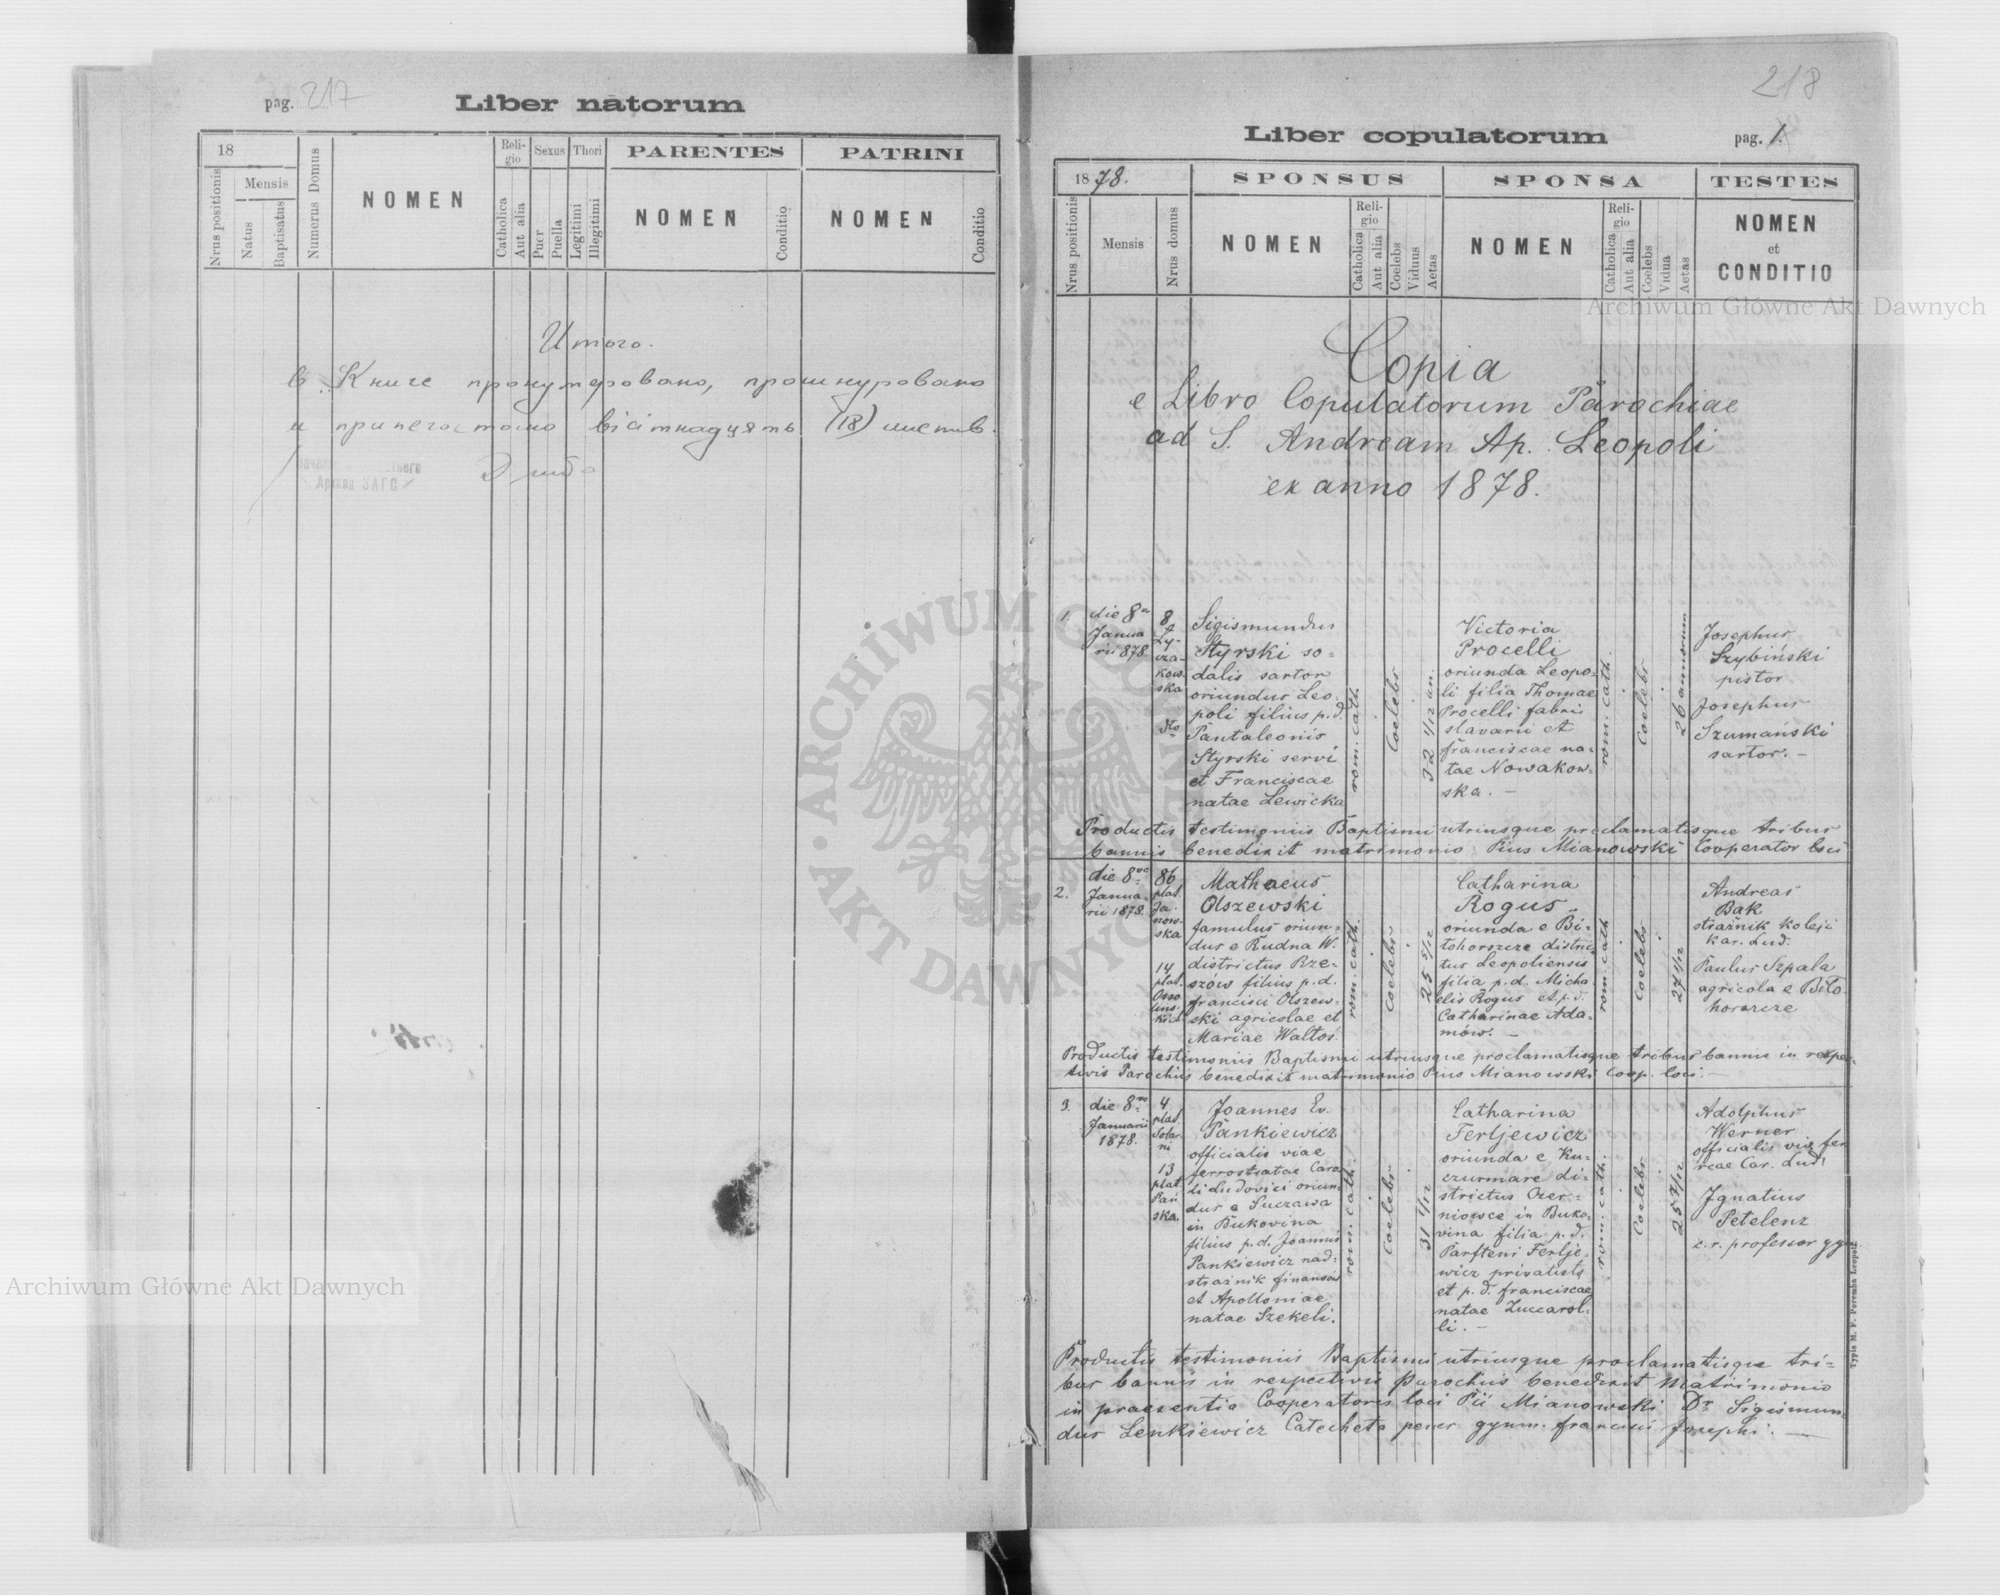 pag. 217
Liber natorum
18
Nrus positionis
Mensis
Natus
Baptisatus
Numerus Domus
NOMEN
Religio
Catholica
Aut alia
Sexus
Puer
Puella
Thori
Legitimi
Illegitimi
PARENTES
NOMEN
Conditio
PATRINI
NOMEN
Conditio
Итого.
в Книге пронумеровано, прошнуровано
и припечатано вісімнадцять (18) листів.
218
Liber copulatorum
pag. 1.
1878.
Nrus positionis
Mensis
Nrus domus
SPONSUS
NOMEN
Religio
Catholica
Aut alia
Coelebs
Viduus
Aetas
SPONSA
NOMEN
Religio
Catholica
Aut alia
Coelebs
Vidua
Aetas
TESTES
NOMEN
et
CONDITIO
Copia
e Libro Copulatorum Parochiae
ad S. Andream Ap. Leopoli
ex anno 1878.
1.
die 8a
Janua
rii 878
8
Ly-
cza-
kow-
ska
Sigismundus
Styrski so=
dalis sartor
oriundus Leo-
poli filius p.d.
Pantaleonis
Styrski servi
et Franciscae
natae Lewicka
rom. cath.
Coelebs
32 1/12 an.
Victoria
Procelli
oriunda Leopo-
li filia Thomae
Procelli fabri
slavarii et
franciscae na-
tae Nowakow-
ska. —
rom. cath.
Coelebs
26 annorum
Josephus
Szybiński
pistor
Josephus
Szumański
sartor. —
Productis testimoniis Baptismi utriusque proclamatisque tribus
bannis benedixit matrimonio Pius Mianowski Cooperator loci
2.
die 8vo
Janua-
rii 1878.
86
plat.
Ja-
now-
ska
14
plat.
Osso
lins-
kich
Mathaeus
Olszewski
famulus oriun-
dus e Rudna W.
districtus Rze-
szów filius p.d.
francisci Olszew-
ski agricolae et
Mariae Waltoś.
rom. cath.
Coelebs
25 5/12
Catharina
Rogus
oriunda e Bi-
tohorszcze distric
tus Leopoliensis
filia p.d. Micha-
elis Rogus et p.d.
Catharinae Ada-
mów. —
rom. cath
Coelebs
27 1/12
Andreas
Bąk
strażnik koleji
Kar. Lud.
Paulus Szpala
agricola e Bito-
horszcze
Productis testimoniis Baptismi utriusque proclamatisque tribus bannis in respec-
tivis Parochiis benedixit matrimonio Pius Mianowski Coop. loci. —
3.
die 8vo
Januarii
1878.
4
plat.
Solar-
ni
13
plat.
Pań
ska.
Joannes Ev.
Pankiewicz
officialis viae
ferrostratae Caro
li Ludovici oriun
dus e Suczawa
in Bukovina
filius p.d. Joannis
Pankiewicz nad-
strażnik finansów
et Apolloniae
natae Szekeli.
rom. cath.
Coelebs
31 1/12
Catharina
Ferljewicz
oriunda e Ku-
czurmare di-
strictus Czer-
niowce in Buko-
vina filia p.d.
Parfteni Ferlje-
wicz privatista
et p.d. franciscae
natae Zuccarol-
li. —
rom. cath.
Coelebs
25 7/12
Adolphus
Werner
officialis viae fer
reae Car. Lud.
Ignatius
Petelenz
c.r. professor gym
Productis testimoniis Baptismi utriusque proclamatisque tri=
bus bannis in respectivis parochiis benedixit Matrimonio
in praesentia Cooperatoris loci Pii Mianowski Dr Sigismun-
dus Lenkiewicz Catecheta penes gymn. francisci Josephi. —
Typis M. F. Poremba Leopoli
Archiwum Główne Akt Dawnych
ARCHIWUM GŁÓWNE AKT DAWNYCH
Archiwum Główne Akt Dawnych